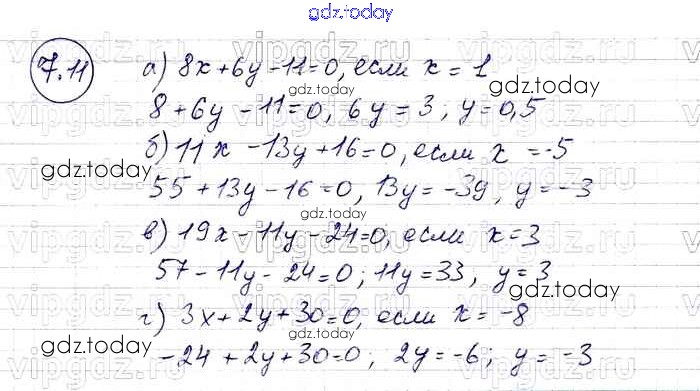 gdz.today
7.11
а) 8x+6y-11=0, если x = 1
gdz.today
8+6y-11=0, 6y=3; y=0,5
gdz.today
б) 11x-13y+16=0, если x=-5
gdz.today
55+13y-16=0, 13y=-39, y=-3
gdz.today
в) 19x-11y-24=0, если x=3
57-11y-24=0; 11y=33, y=3
gdz.today
г) 3x+2y+30=0, если x=-8
gdz.today
gdz.today
-24+2y+30=0; 2y=-6; y=-3
vipgdz.ru